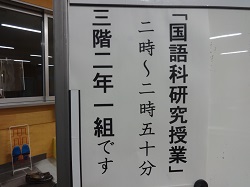 「国語科研究授業」
二時~二時五十分
三階二年一組です